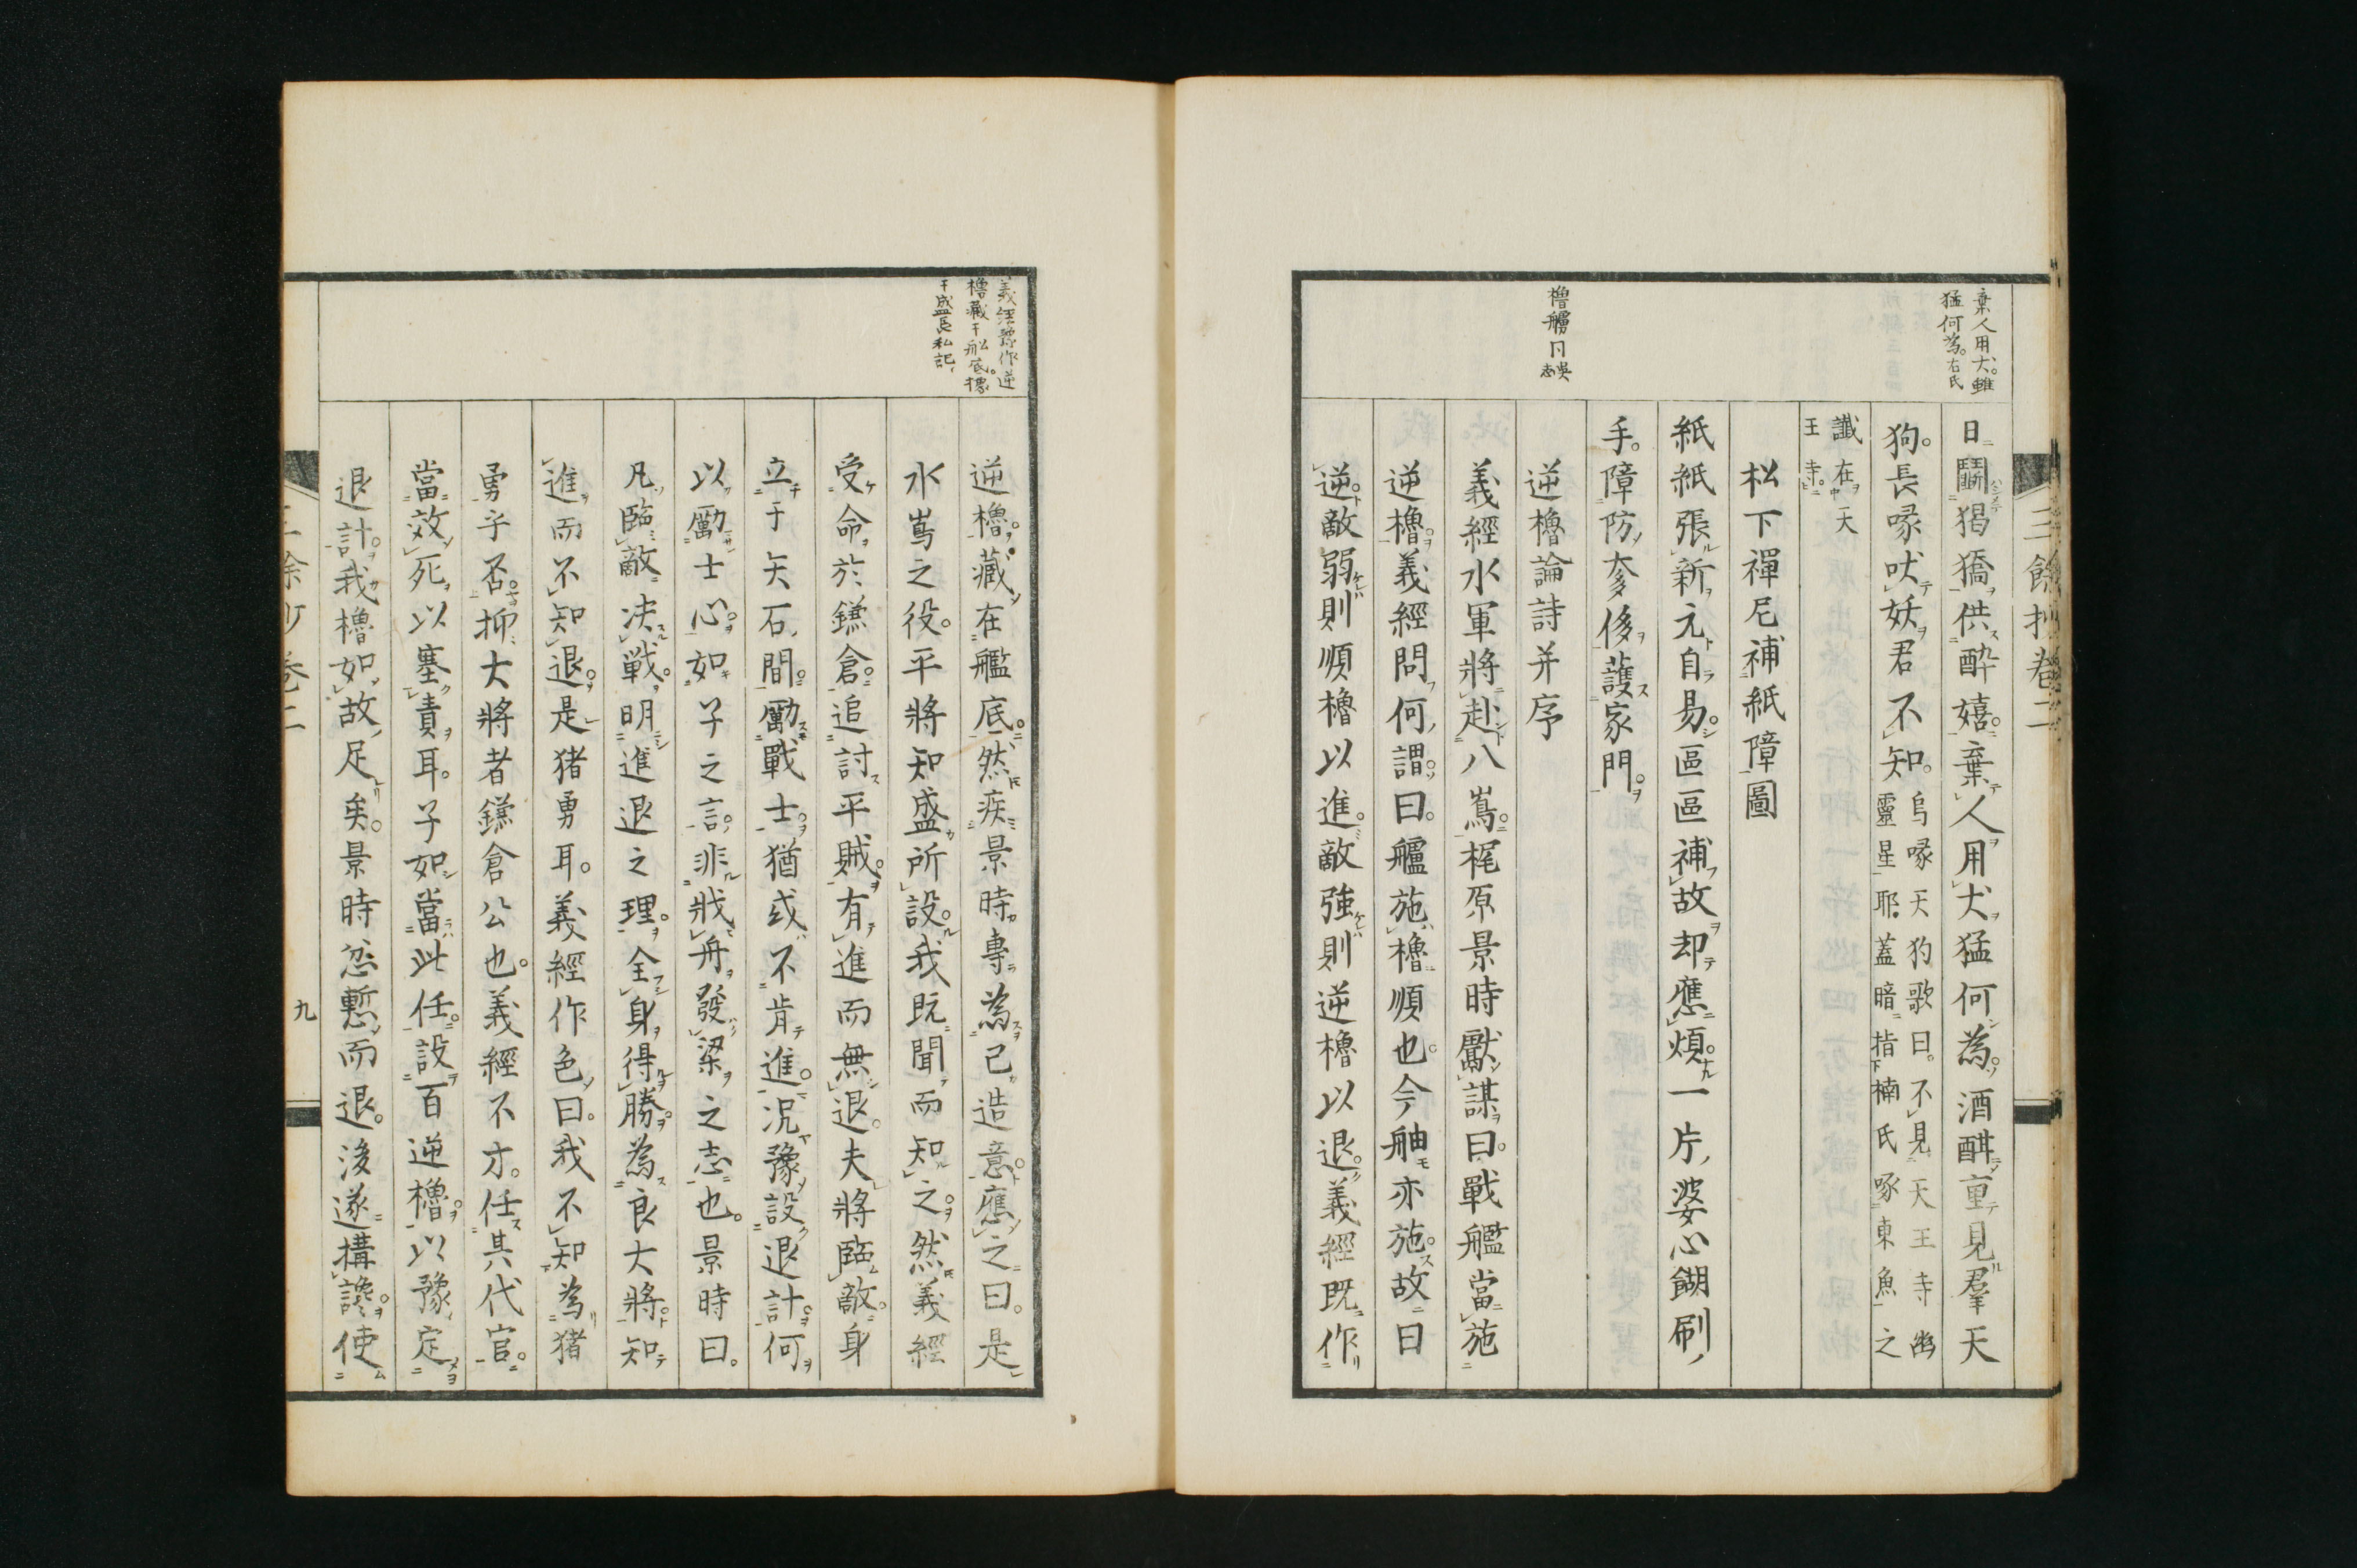 三餘抄卷二
棄人用犬。雖
猛何為。左氏
日鬪猲獢供醉嬉。棄人用犬猛何為。酒酣重見羣天
狗。長喙吠妖君不知。烏喙天狗歌曰。不見天王寺幽
靈星耶。蓋暗指楠氏啄東魚之
讖在天
王寺。
松下禪尼補紙障圖
紙紙張新元自易。區區補故却應煩。一片婆心餬刷
手。障防奓侈護家門。
櫓艣同吳志
逆櫓論詩并序
義經水軍將赴八嶌。梶原景時獻謀曰。戰艦當施
逆櫓。義經問何謂。曰。艫施櫓順也。今舳亦施。故曰
逆。敵弱則順櫓以進。敵強則逆櫓以退。義經既作
義經豫作逆
櫓藏于船底。據
于盛長私記
逆櫓。藏在艦底。然疾景時專為己造意。應之曰。是
水嶌之役。平將知盛所設。我既聞而知之。然義經
受命於鎌倉。追討平賊。有進而無退。夫將臨敵。身
立于矢石間。勵戰士。猶或不肯進。況豫設退計。何
以勵士心。如子之言。非戕舟發梁之志也。景時曰。
凡臨敵決戰。明進退之理。全身得勝。為良大將。知
進而不知退。是猪勇耳。義經作色曰。我不知為猪
勇乎否。抑大將者鎌倉公也。義經不才。任其代官。
當效死以塞責耳。子如當此任。設百逆櫓。以豫定
退計。我櫓如故足矣。景時忿慙而退。後遂構讒。使
三餘抄卷二
九